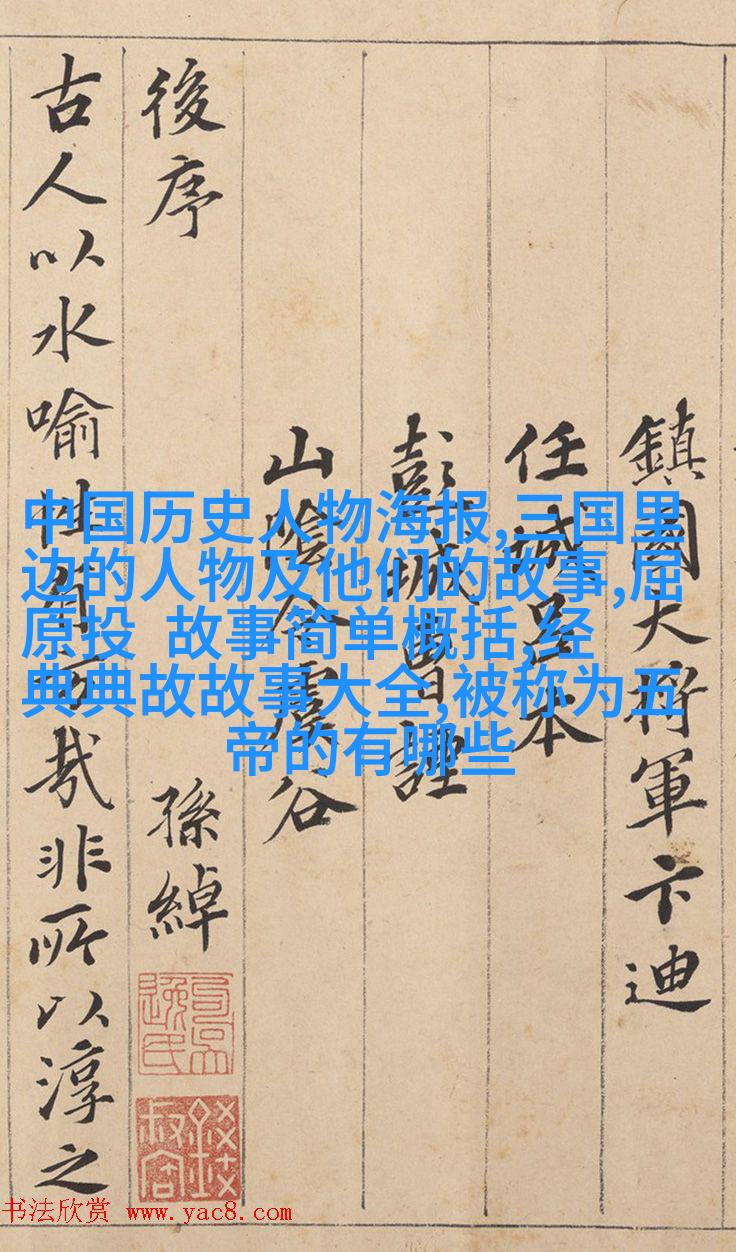 鎮國大将軍卞迪
任城呂本
彭城曹諲
山陰令虞谷
後序 孫綽
古人以水喻性有哉非所以淳之
中国历史人物海报,三国里
边的人物及他们的故事,屈
原投 故事简单概括,经
典典故故事大全,被称为五
帝的有哪些
书法欣赏 www.yac8.com